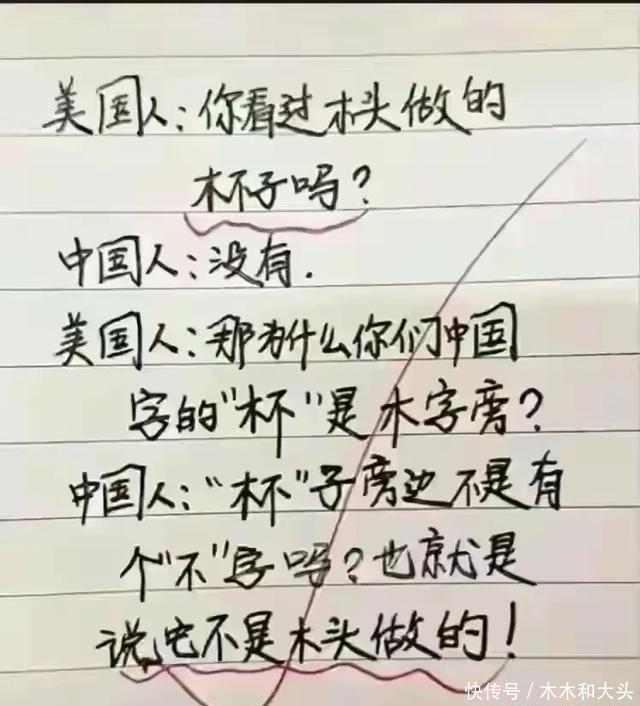 美国人:你看过木头做的
杯子吗?
中国人:没有.
美国人:那为什么你们中国
字的"杯"是木字旁?
中国人:"杯"子旁边不是有
个"不"字吗?也就是
说,它不是木头做的!
快传号/木木和大头